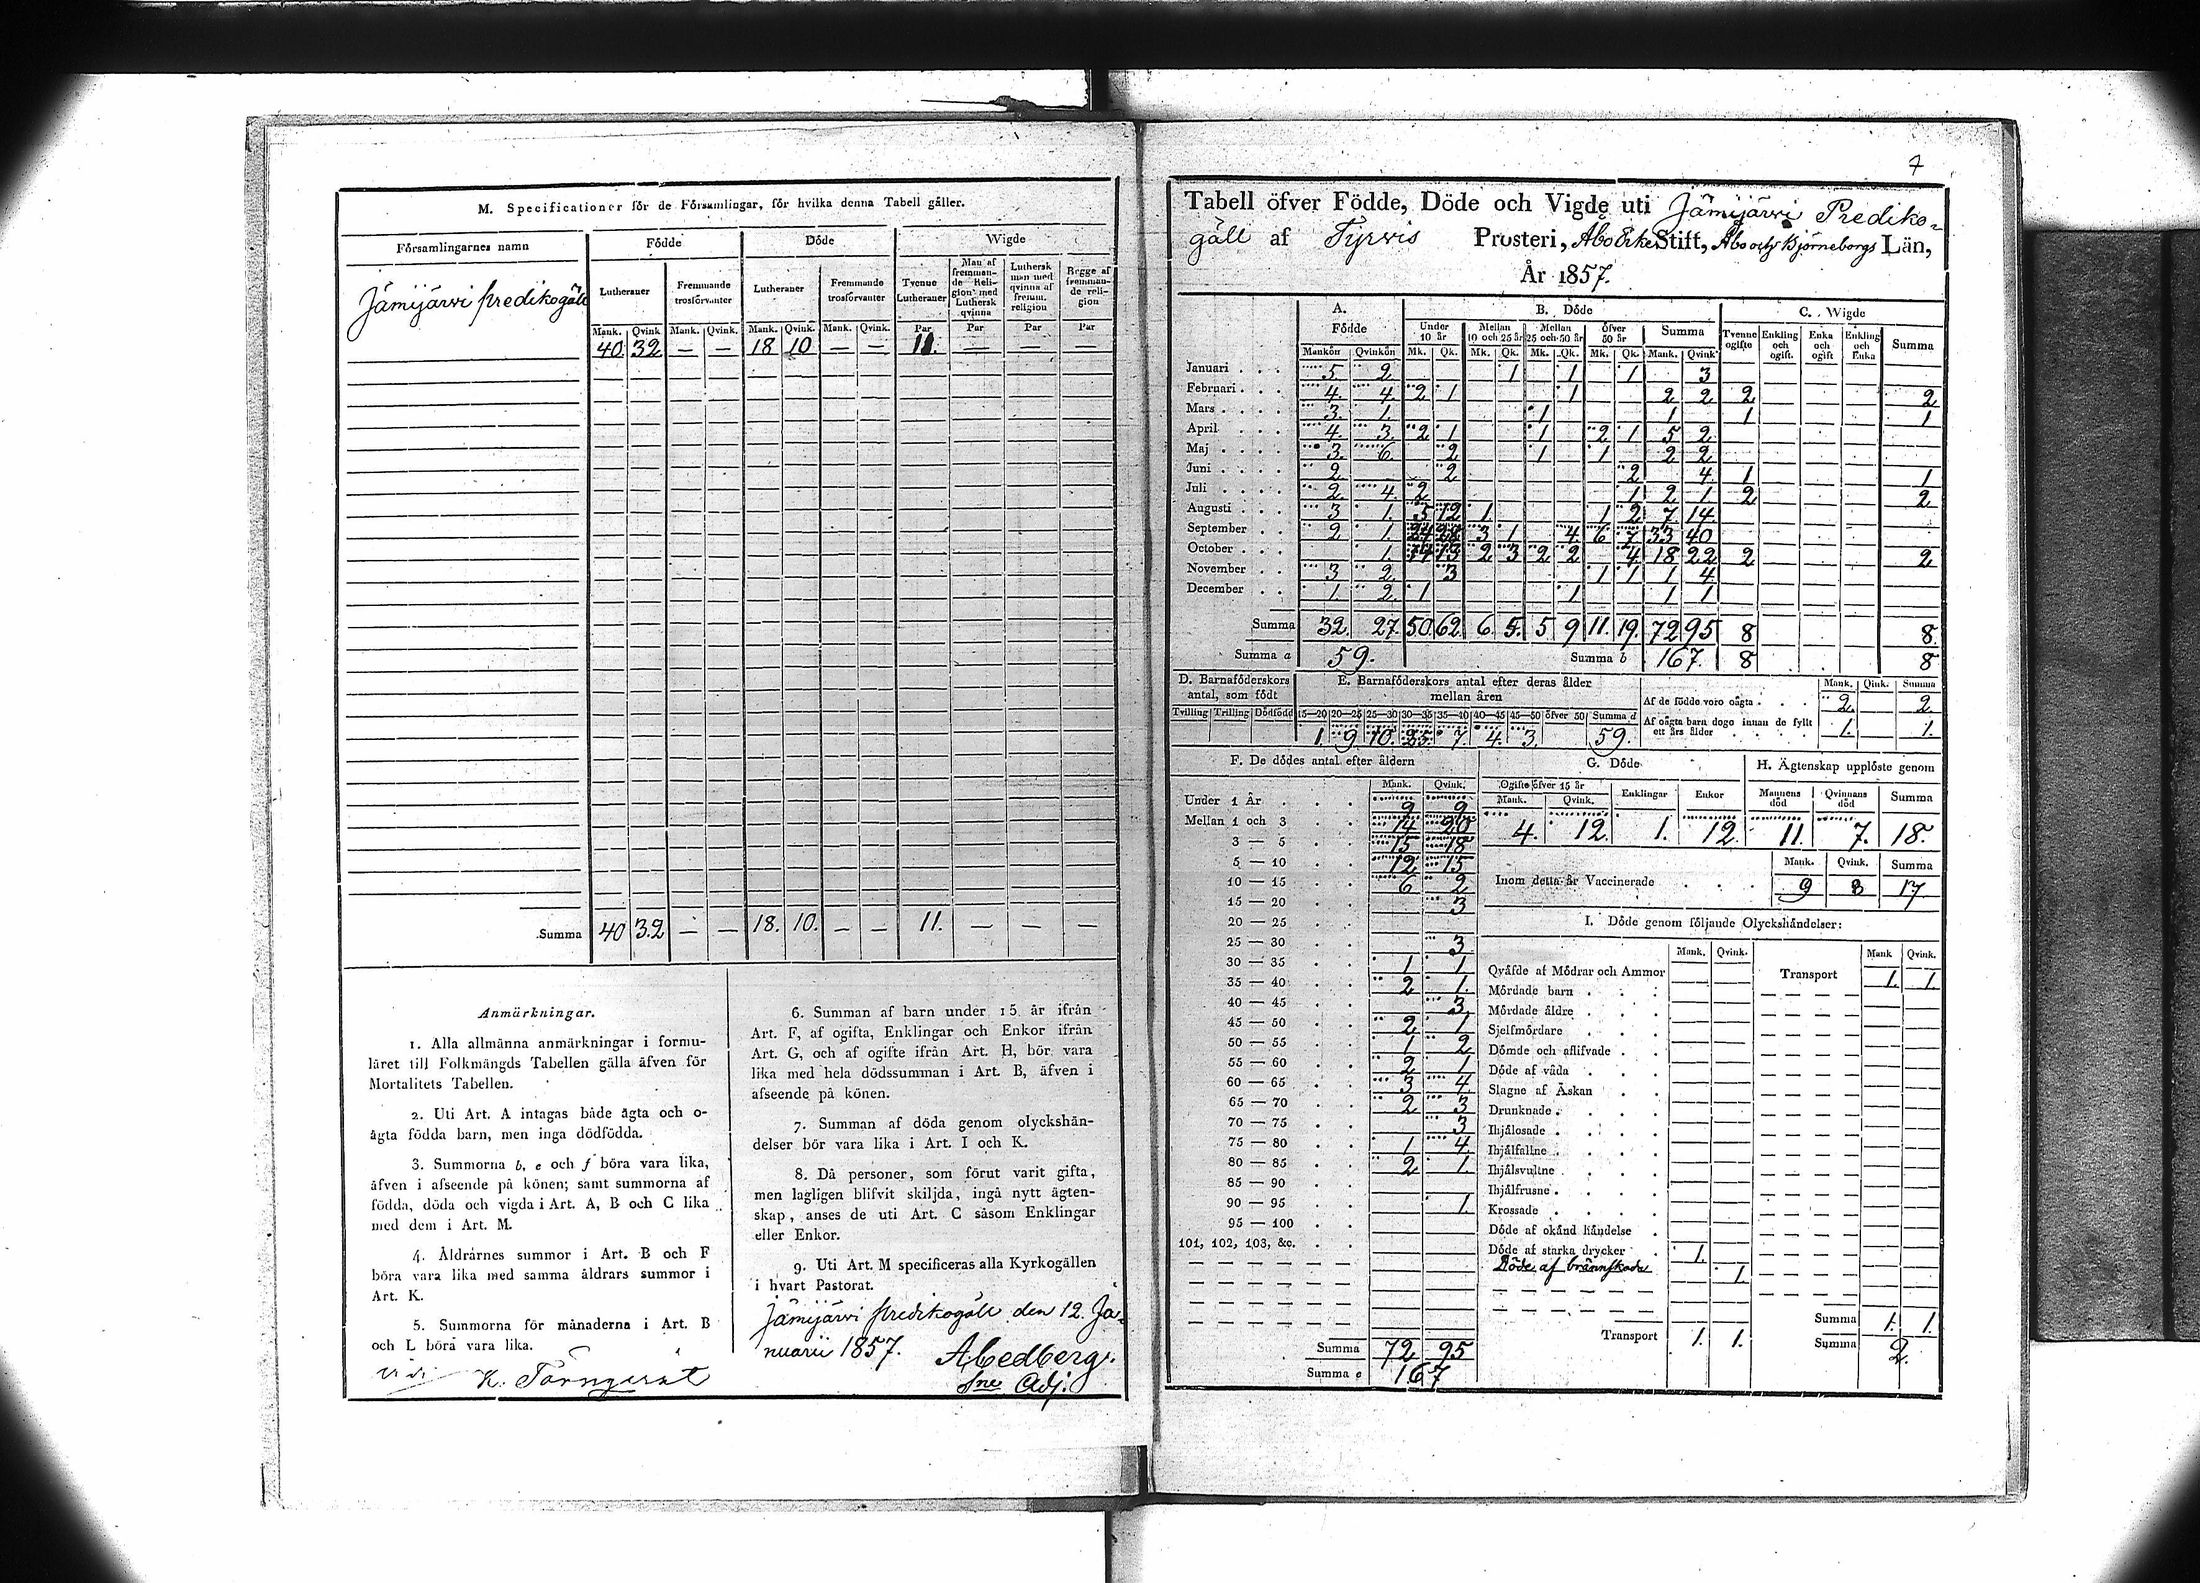 M. Specificationer för de Församlingar, för hvilka denna Tabell gäller.
Församlingarnes namn Födde Döde Wigde
Lutheraner Fremmande trosförvanter Lutheraner Fremmande trosförvanter Tvenne Lutheraner Man af fremmande Religion med Luthersk qvinna Luthersk man med qvinna af fremm. religion Begge af fremmande religion
Mank. Qvink. Mank. Qvink. Mank. Qvink. Mank. Qvink. Par Par Par Par
Jämijärwi predikogäll 40. 32 — — 18 10 — — 11. — — —
Summa 40 32 — — 18. 10. — — 11. — — —
Anmärkningar.
1. Alla allmänna anmärkningar i formu-
läret till Folkmängds Tabellen gälla äfven för
Mortalitets Tabellen.
2. Uti Art. A intagas både ägta och o-
ägta födda barn, men inga dödfödda.
3. Summorna b, e och f böra vara lika,
äfven i afseende på könen; samt summorna af
födda, döda och vigda i Art. A, B och C lika
med dem i Art. M.
4. Åldrarnes summor i Art. B och F
böra vara lika med samma åldrars summor i
Art. K.
5. Summorna för månaderna i Art. B
och L böra vara lika.
vidi K. Törnqvist
6. Summan af barn under 15 år ifrån
Art. F, af ogifta, Enklingar och Enkor ifrån
Art. G, och af ogifte ifrån Art. H, bör vara
lika med hela dödssumman i Art. B, äfven i
afseende på könen.
7. Summan af döda genom olyckshän-
delser bör vara lika i Art. I och K.
8. Då personer, som förut varit gifta,
men lagligen blifvit skiljda, ingå nytt ägten-
skap, anses de uti Art. C såsom Enklingar
eller Enkor.
9. Uti Art. M specificeras alla Kyrkogällen
i hvart Pastorat.
Jämijärvi predikogäll den 12. Ja-
nuarii 1857.
A. Cedberg.
Adj.
7
Tabell öfver Födde, Döde och Vigde uti Jämijärwi Prediko-
gäll af Tyrvis Prosteri, Åbo Erke Stift, Åbo och Björneborgs Län,
År 1857.
A. Födde B. Döde C. Wigde
Under 10 år Mellan 10 och 25 år Mellan 25 och 50 år Öfver 50 år Summa Tvenne ogifte Enkling och ogift. Enka och ogift Enkling och Enka Summa
Mankön Qvinkön Mk. Qk. Mk. Qk. Mk. Qk. Mk. Qk. Mank. Qvink.
Januari 5 2 1 1 1 3
Februari 4. 4. 2 1 1 2 2 2 2
Mars 3. 1. 1 1 1 1
April 4. 3. 2 1 1 2 1 5 2
Maj 3. 6. 2 1 1 2 2
Juni 2 2 2 4. 1 1
Juli 2. 4. 2 1 2 1 2 2
Augusti 3 1. 5 12 1 1 2 7 14
September 2 1. 24 28 3 1 4 6 7 33 40
October 1. 14 13 2 3 2 2 4 18 22 2 2
November 3 2. 3 1 1 1 4
December 1. 2. 1 1 1 1
Summa 32. 27. 50. 62. 6. 5. 5 9 11. 19. 72 95 8 8.
Summa a 59. Summa b 167. 8 8
D. Barnaföderskors antal, som födt
Tvilling Trilling Dödfödd
E. Barnaföderskors antal efter deras ålder mellan åren
15—20 20—25 25—30 30—35 35—40 40—45 45—50 öfver 50 Summa d
1. 9. 10. 25. 7. 4. 3. 59.
Mank. Qink. Summa
Af de födde voro oägta 2. 2.
Af oägta barn dogo innan de fyllt ett års ålder 1. 1.
F. De dödes antal efter åldern
Mank. Qvink.
Under 1 År 9 9
Mellan 1 och 3 14 20
3 — 5 15 18
5 — 10 12 15
10 — 15 6 2
15 — 20 3
20 — 25
25 — 30 3
30 — 35 1 1
35 — 40 2 1.
40 — 45 3
45 — 50 2 1
50 — 55 1 2
55 — 60 2 1
60 — 65 3 4
65 — 70 2 3
70 — 75 3
75 — 80 1 4
80 — 85 2 1.
85 — 90
90 — 95 1.
95 — 100
101, 102, 103, &c.
Summa 72 95
Summa e 167
G. Döde
Ogifte öfver 15 år Enklingar Enkor
Mank. Qvink.
4. 12. 1. 12.
H. Ägtenskap upplöste genom
Mannens död Qvinnans död Summa
11. 7. 18.
Mank. Qvink. Summa
Inom detta år Vaccinerade 9 8 17
I. Döde genom följande Olyckshändelser:
Mank. Qvink. Mank Qvink.
Qväfde af Mödrar och Ammor Transport 1. 1.
Mördade barn
Mördade äldre
Sjelfmördare
Dömde och aflifvade
Döde af våda
Slagne af Åskan
Drunknade
Ihjälosade
Ihjälfallne
Ihjälsvultne
Ihjälfrusne
Krossade
Döde af okänd händelse
Döde af starka drycker 1.
Döde af brännskada 1.
Summa 1. 1.
Transport 1. 1. Summa 2.